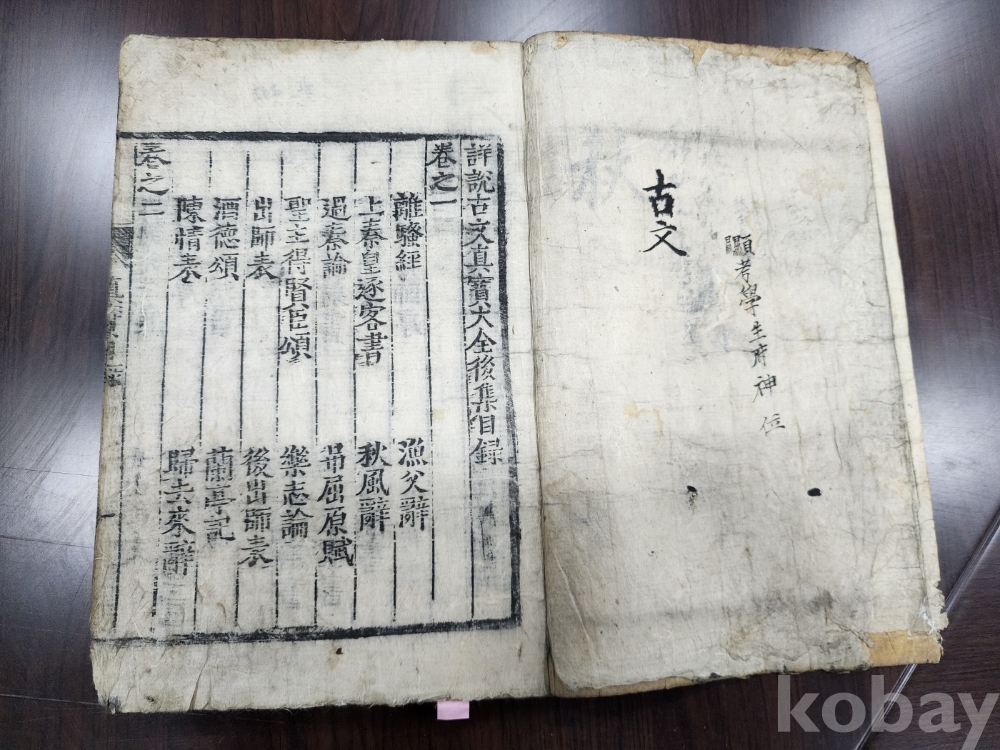 古文
顯考學生府神位
詳說古文真寶大全後集目錄
卷之一
離騷經 漁父辭
上秦皇逐客書 秋風辭
過秦論 弔屈原賦
聖主得賢臣頌 樂志論
出師表 後出師表
酒德頌 蘭亭記
陳情表 歸去來辭
卷之二
kobay